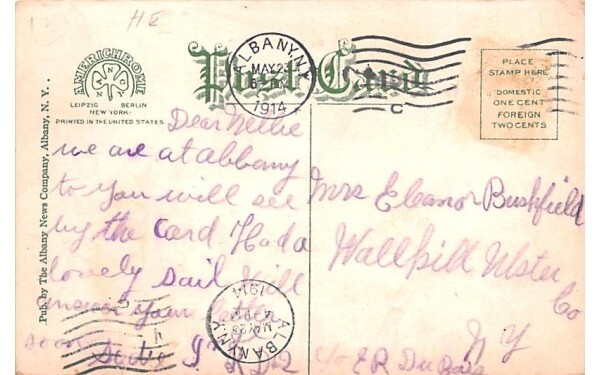 H
AMERICHROME
A N C
N Y
LEIPZIG BERLIN
NEW YORK
PRINTED IN THE UNITED STATES.
Pub. by The Albany News Company, Albany, N. Y.
Post Card
ALBANY N.Y.
MAY 2
1914
C
PLACE
STAMP HERE
DOMESTIC
ONE CENT
FOREIGN
TWO CENTS
Dear Nellie
we are at abbany
to you will see
by the card Had a
lovely sail Will
your
soon
Mrs Eleanor Bushfield
Wallkill Ulster
Co
N Y
c/o E R Du Bois
ALBANY N.Y.
MAY
1914